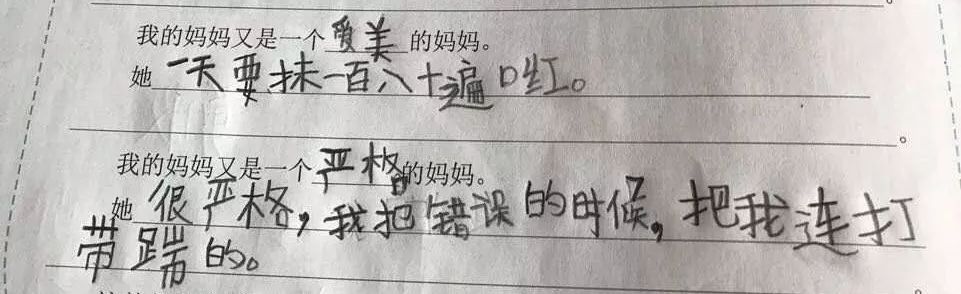 我的妈妈又是一个爱美的妈妈。
她一天要抹一百八十遍口红。
。
我的妈妈又是一个严格的妈妈。
她很严格，我把错误的时候，把我连打
带踹的。